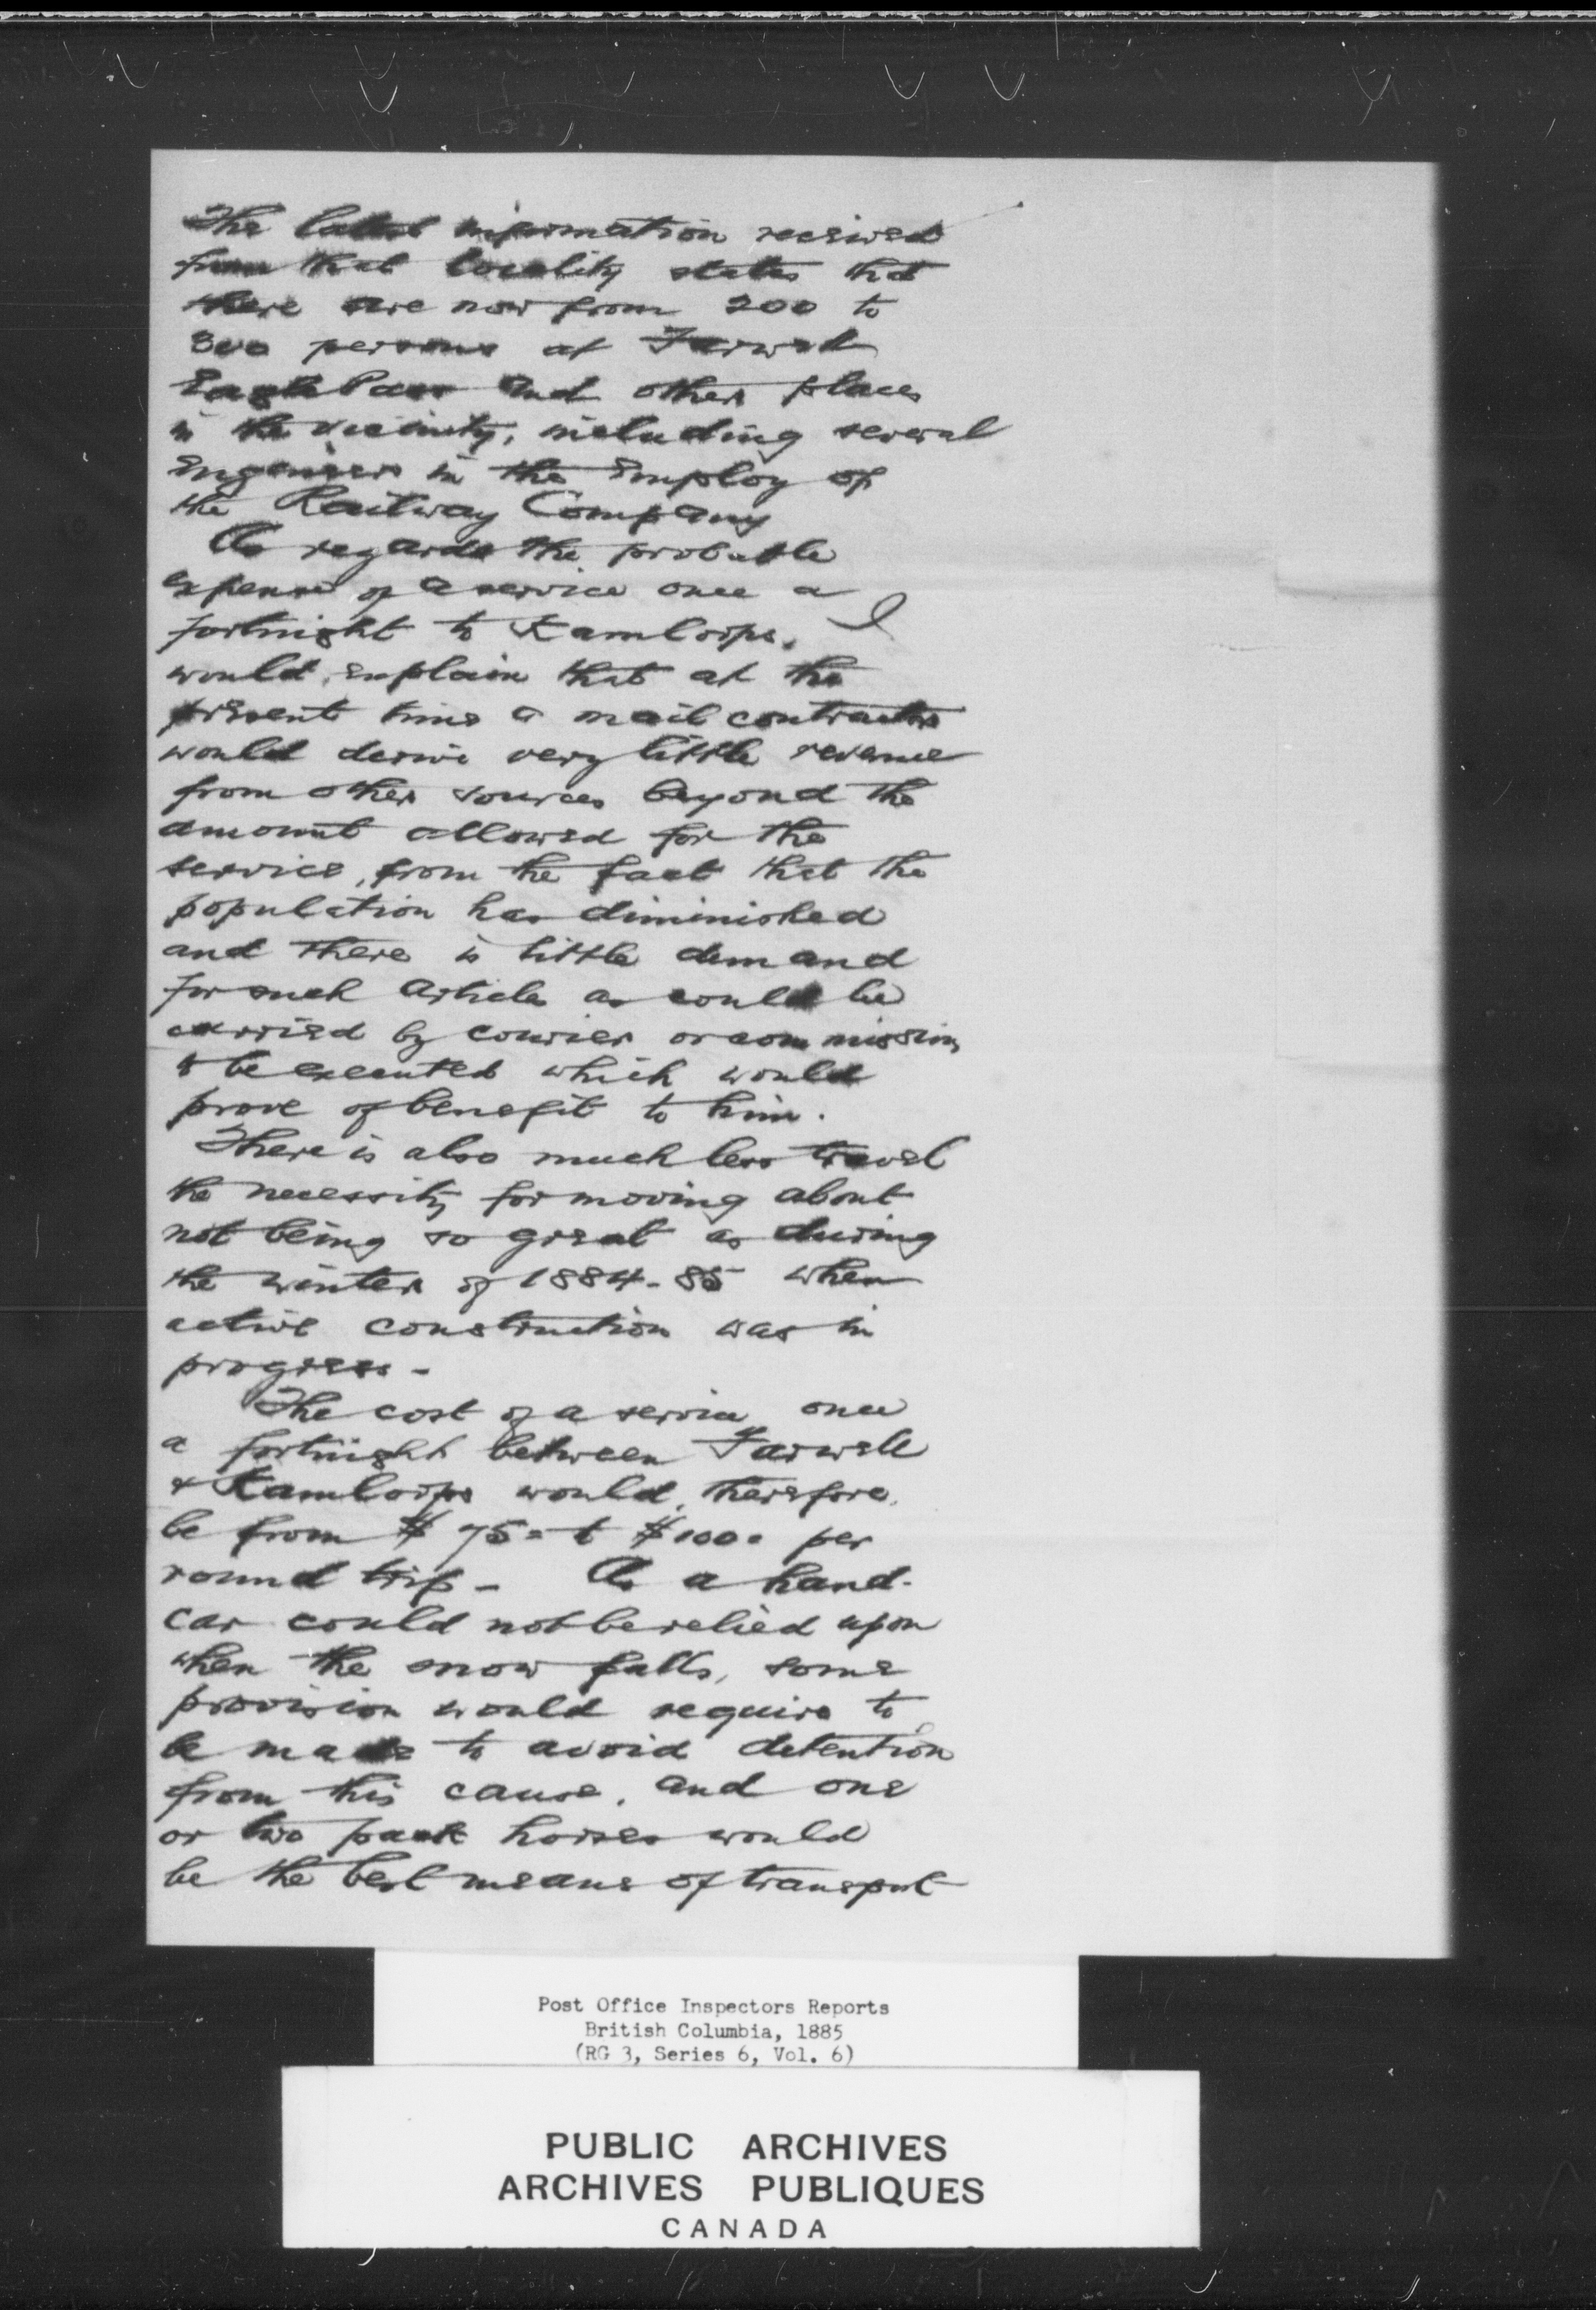 The latest information received
from that locality states that
there are now from 200 to
300 persons at Farwell
Eagle Pass and other places
in the vicinity, including several
Engineers in the Employ of
the Railway Company
As regards the probable
expense of a service once a
fortnight to Kamloops, I
would explain that at the
present time a mail contractor
would derive very little revenue
from other sources beyond the
amount allowed for the
service, from the fact that the
population has diminished
and there is little demand
for such articles as could be
carried by courier or commissions
to be executed which would
prove of benefit to him.
There is also much less travel
the necessity for moving about
not being so great as during
the winter of 1884-85 when
active construction was in
progress -
The cost of a service once
a fortnight between Farwell
& Kamloops would, therefore,
be from $75= to $100= per
round trip - As a hand-
car could not be relied upon
when the snow falls, some
provision would require to
be made to avoid detention
from this cause, and one
or two pack horses would
be the best means of transport
Post Office Inspectors Reports
British Columbia, 1885
(RG 3, Series 6, Vol. 6)
PUBLIC ARCHIVES
ARCHIVES PUBLIQUES
CANADA